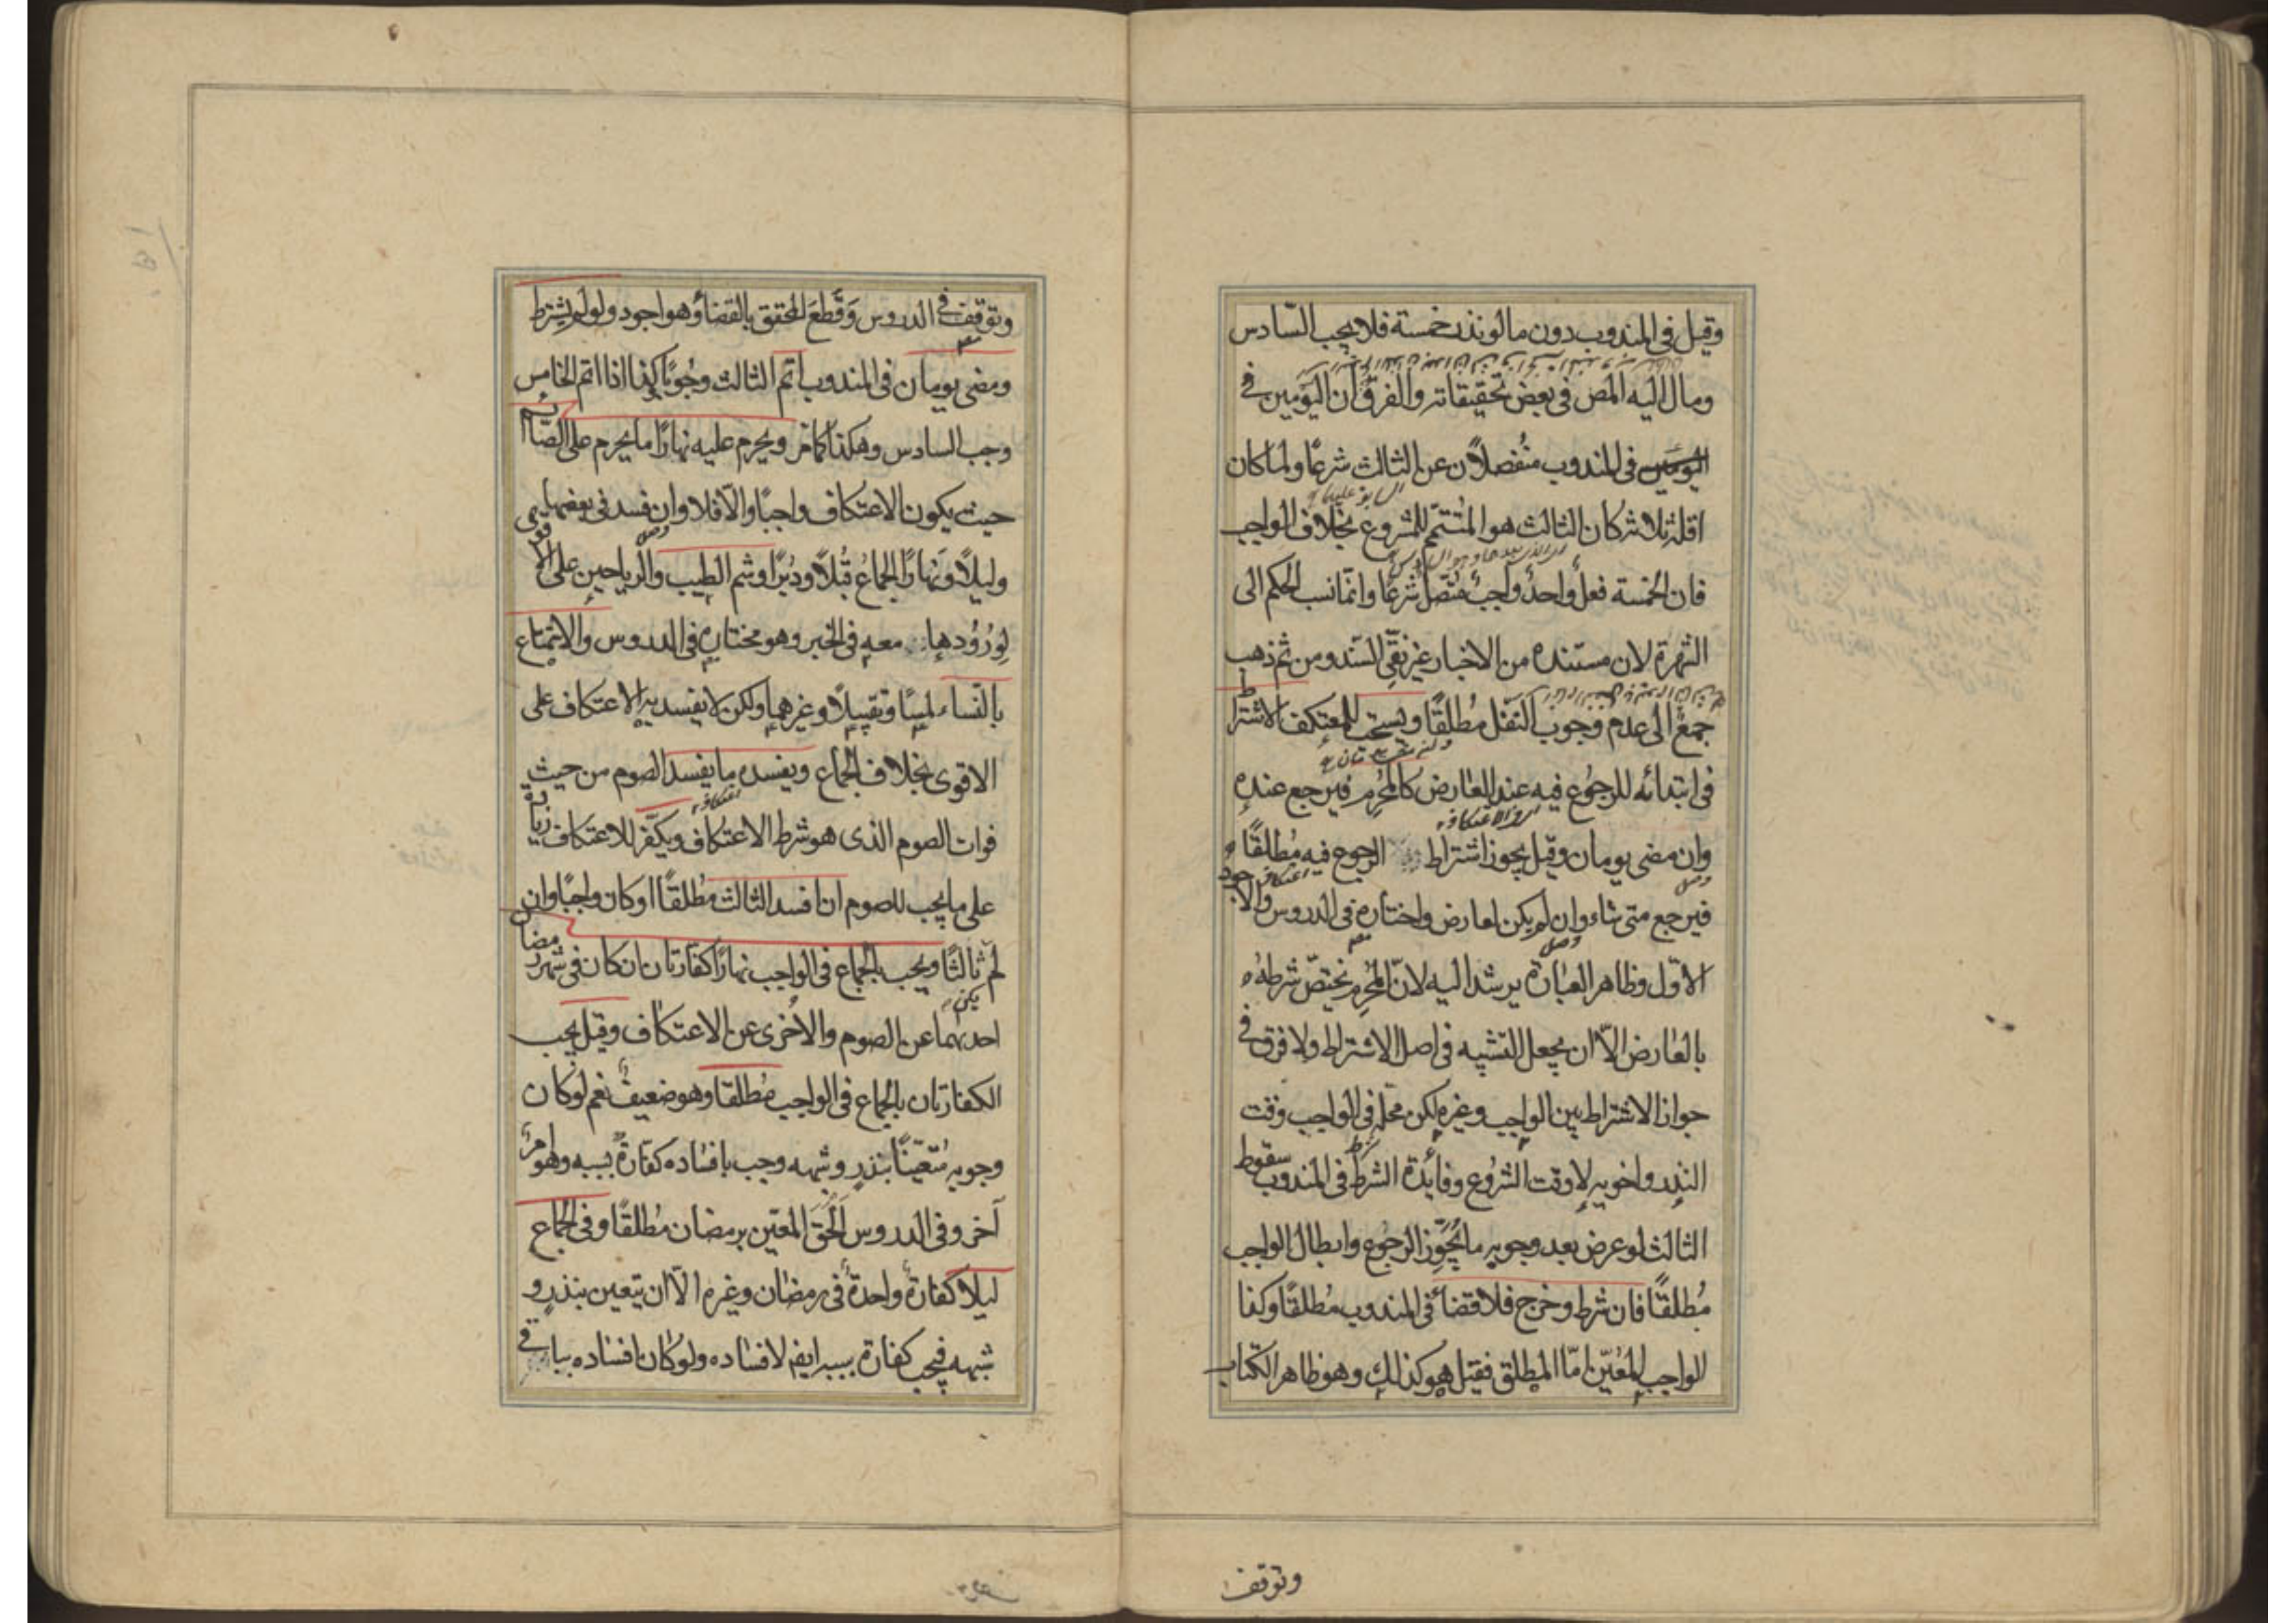 وقيل في المندوب دون ما لو نذر خمسة فلا يجب السّادس
ومال اليه المص في بعض تحقيقاته والفرق أن اليومين في
اليومين في المندوب منفصلان عن الثالث شرعًا ولما كان
اقله ثلاثة كان الثالث هو المتمّم للمشروع بخلاف الواجب
فان الخمسة فعلٌ واحدٌ واجبٌ متصلٌ شرعًا وانّما نسب الحكم الى
الشهرة لان مستنده من الاخبار غير نقيّ السّند ومن ثم ذهب
جمعٌ الى عدم وجوب النفل مُطلقًا ويستحب للمعتكف الاشتراط
في ابتدائه للرجوع فيه عند العارض كالمُحرم فيرجع عنده
وان مضى يومان وقيل يجوز اشتراط الرجوع فيه مُطلقًا
فيرجع متى شاء وان لم يكن لعارض واختاره في الدروس والاجود
الأوّل وظاهر العبارة يرشد اليه لانّ المُحرم يختصّ شرطه
بالعارض الّا ان يجعل التشبيه في اصل الاشتراط ولا فرق في
جواز الاشتراط بين الواجب وغيره لكن محلّه في الواجب وقت
النذر واخويه لا وقت الشرُوع وفائدة الشرط في المندوب سقوط
الثالث لو عرض بعد وجوبه ما يُجَوِّز الرجُوع وابطال الواجب
مُطلقًا فان شرط وخرج فلا قضاءَ في المندوب مُطلقًا وكذا
الواجب المُعيّن امّا المطلق فقيل هو كذلك وهو ظاهر الكتاب
وتوقف
وتوقف في الدروس وَقَطَعَ المحقق بالقضاء وهو اجود ولو لم يشترط
ومضى يومان في المندوب اتم الثالث وجُوبًا وكذا اذا اتم الخامس
وجب السادس وهكذا كما مرّ ويحرم عليه نهارًا ما يحرم على الصّائم
حيث يكون الاعتكاف واجبًا والّا فلا وان فسد في بعضها
وليلًا ونَهارًا الجماعُ قُبُلًا ودُبُرًا وشم الطيب والرياحين على الاقوى
لِوُرُودها معه في الخبر وهو مختاره في الدروس والاستمتاع
بالنّساء لمسًا وتقبيلًا وغيرهما ولكن لا يفسد به الاعتكاف على
الاقوى بخلاف الجماع ويفسده ما يفسد الصوم من حيث
فوات الصوم الذى هو شرط الاعتكاف ويكفّر للاعتكاف زيادة
على ما يجب للصوم ان افسد الثالث مُطلقًا او كان واجبًا وان
لم يكن ثالثًا ويجب بالجماع في الواجب نهارًا كفّارتان ان كان في شهر رمضان
احديهما عن الصوم والاُخرى عن الاعتكاف وقيل يجب
الكفارتان بالجماع في الواجب مُطلقا وهو ضعيفٌ نعم لو كان
وجوبه مُتعيّنًا بنذرٍ وشبهه وجب بافساده كفّارةٌ بسببه وهو امرٌ
آخر وفي الدروس اَلْحَقَ المعيّن برمضان مُطلقًا وفي الجُماع
ليلًا كفارةٌ واحدةٌ في رمضان وغيره الّا ان يتعين بنذرٍ و
شبهه فيجب كفارة بسببه ايضا لافساده ولو كان افساده بباقي